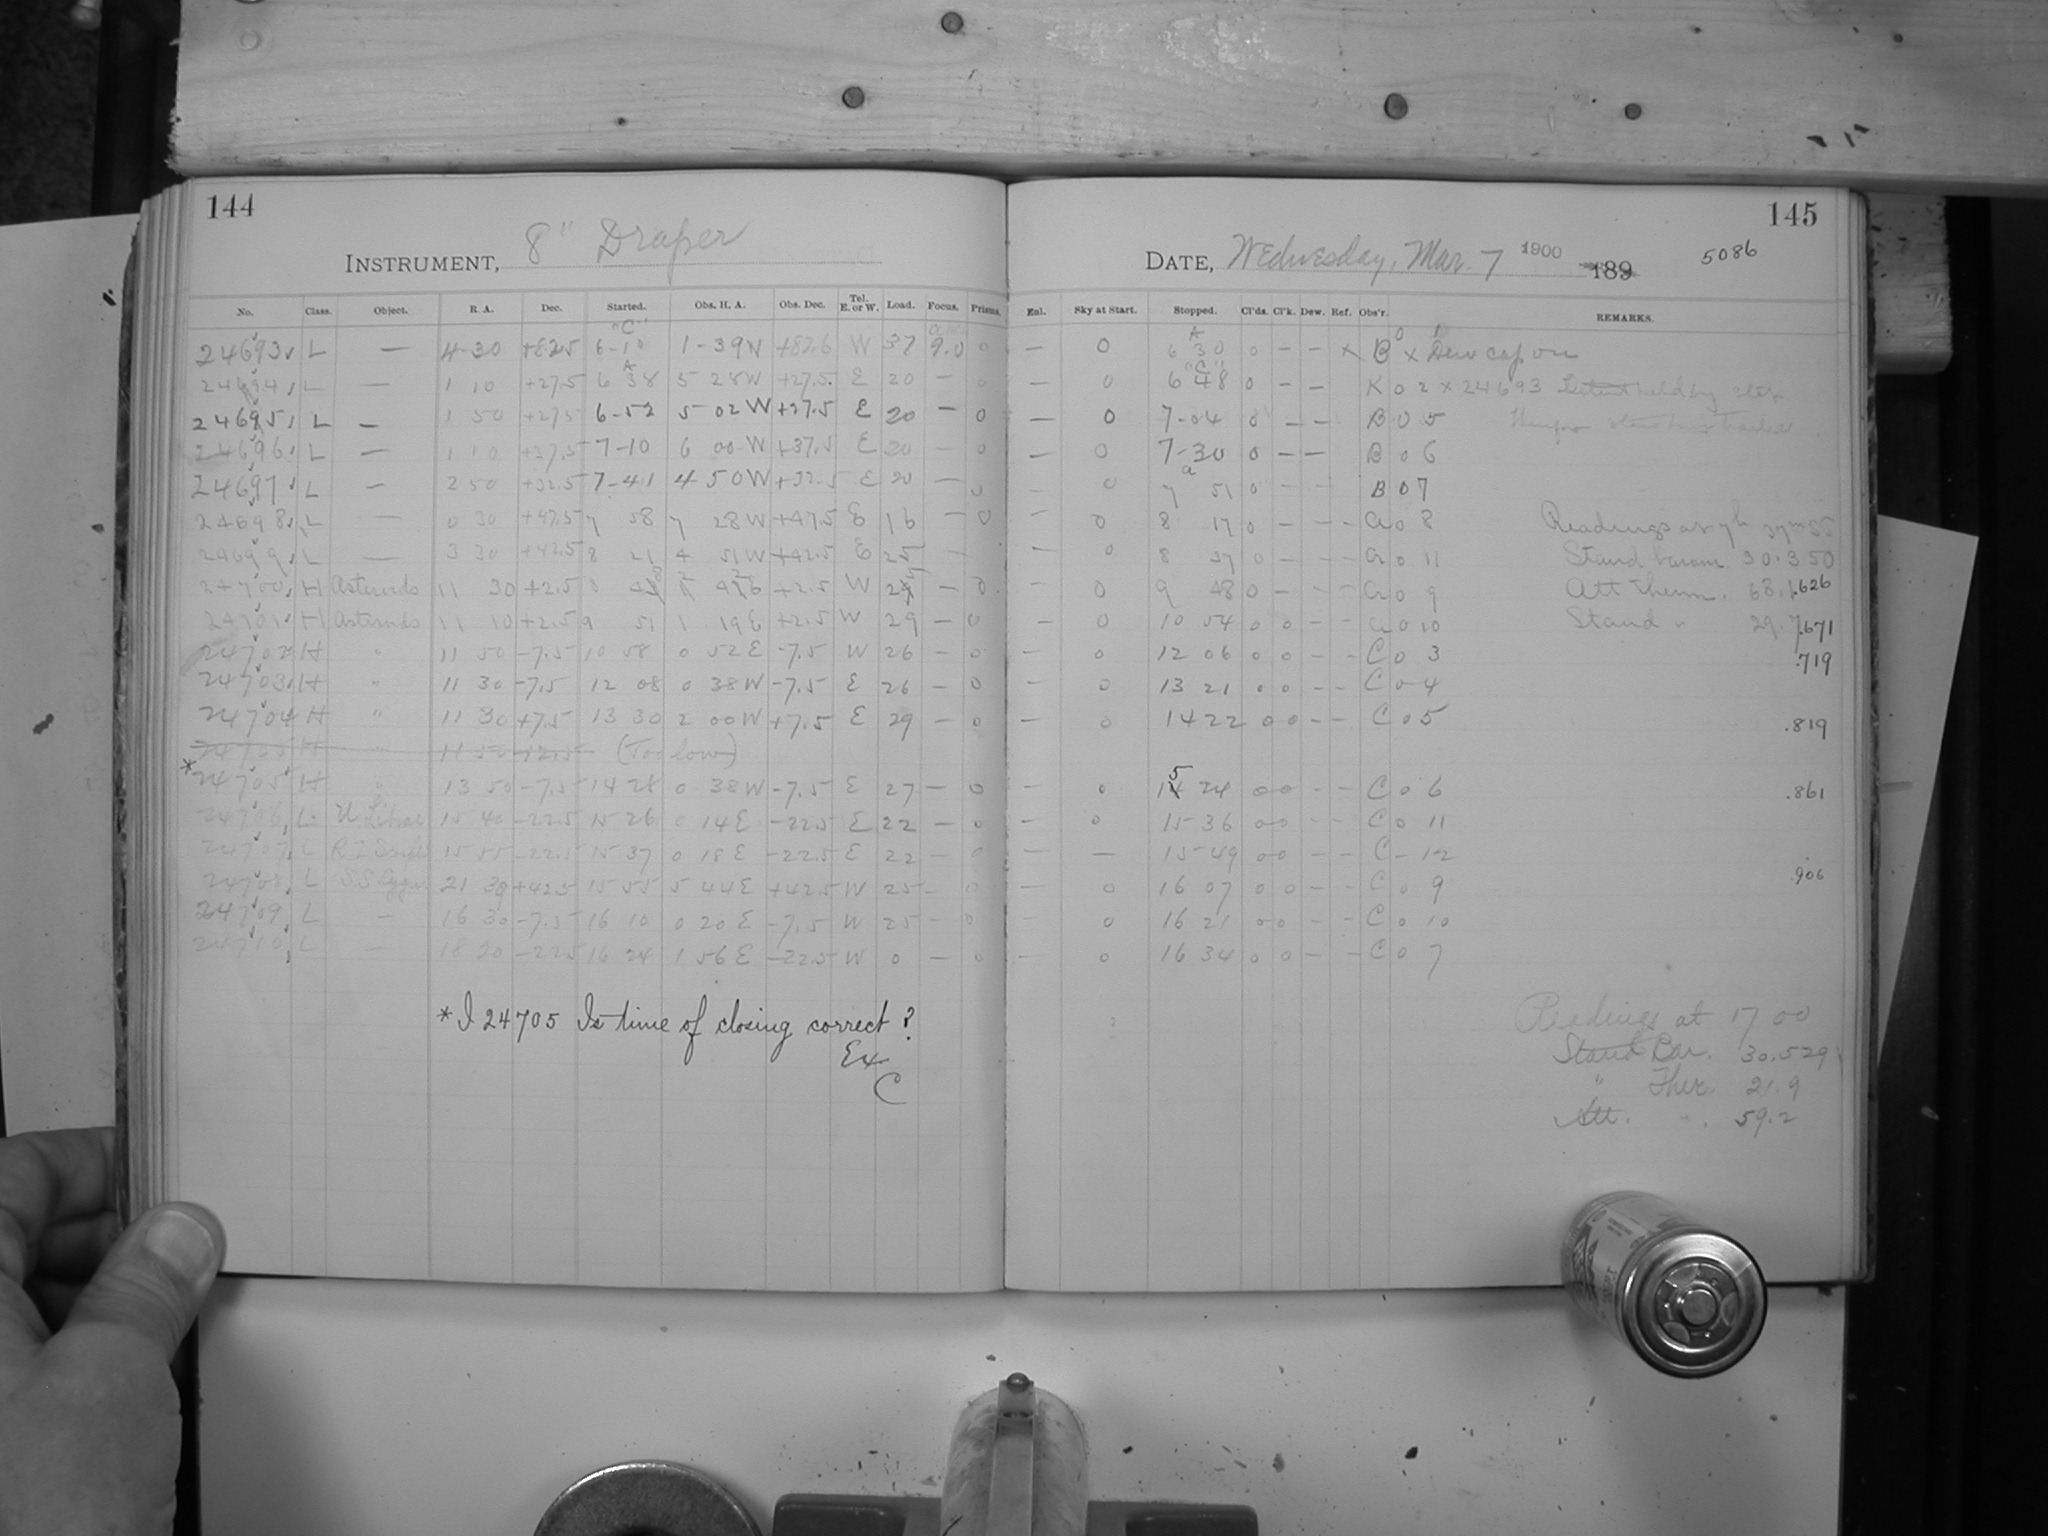 144
INSTRUMENT, 8" Draper
No. Class. Object. R. A. Dec. Started. Obs. H. A. Obs. Dec. Tel. E. or W. Load. Focus. Prisms.
"C"
24693 L — 4-30 +82.5 6-10 1-39W +82.6 W 37 9.0 0
A
24694 L — 1 10 +27.5 6 38 5 28W +27.5 E 20 — 0
24695 L — 1 50 +27.5 6-52 5 02 W +27.5 E 20 — 0
24696 L — 1 10 +37.5 7-10 6 00 W +37.5 E 20 — 0
24697 L — 2 50 +32.5 7-41 4 50W +32.5 E 20 0
24698 L — 0 30 +47.5 7 58 7 28W +47.5 E 16 — 0
24699 L — 3 30 +42.5 8 21 4 51W +42.5 E 25 —
24700 H Asteroids 11 30 +2.5 +2.5 W — 0
24701 H Asteroids 11 10 +2.5 9 51 1 19E +2.5 W 29 — 0
24702 H " 11 50 -7.5 10 58 0 52 E -7.5 W 26 — 0
24703 H " 11 30 -7.5 12 08 0 38W -7.5 E 26 — 0
24704 H " 11 30 +7.5 13 30 2 00W +7.5 E 29 — 0
24705 H " 11 50 -12.5 (Too low)
* 24705 H " 13 50 -7.5 14 28 0 38W -7.5 E 27 — 0
24706 L U Librae 15 40 -22.5 15 26 0 14E -22.5 E 22 — 0
24707 L 15 55 -22.5 15 37 0 18 E -22.5 E 22 — 0
24708 L S.S. Cygni 21 39 +42.5 15 55 5 44E +42.5 W 25 — 0
24709 L — 16 30 -7.5 16 10 0 20 E -7.5 W 25 — 0
24710 L — 18 20 -22.5 16 24 1 56 E -22.5 W 0 — 0
* I 24705 Is time of closing correct?
Ex
C
145
DATE, Wednesday, Mar. 7 1900 189 5086
Enl. Sky at Start. Stopped. Cl'ds. Cl'k. Dew. Ref. Obs'r. REMARKS.
A
— 0 6 30 0 — — x B 0 1 x Dew cap on
"C"
— 0 6 48 0 — — K 0 2 x 24693 held by
— 0 7-04 0 — — B 0 5
— 0 7-30 0 — — B 0 6
a
— 0 7 51 0 — — B 0 7
0 8 17 0 — — — 0 8 Readings at 7h 37m
— 0 8 37 0 — — 0 11 Stand barom 30.350
— 0 9 48 0 — — — 0 9 Att Therm. 68.1 .626
— 0 10 54 0 0 — 0 10 Stand " 29.7 .671
— 0 12 06 0 0 — — C 0 3 .719
— 0 13 21 0 0 — — C 0 4
— 0 14 22 0 0 — — C 0 5 .819
5
— 0 14 24 0 0 — — C 0 6 .861
— 0 15 36 0 0 — C 0 11
— — 15 49 0 0 — — C — 12
— 0 16 07 0 0 — — C 0 9 .906
— 0 16 21 0 0 — — C 0 10
— 0 16 34 0 0 — — C 0 7
Readings at 17 00
Stand Bar. 30.529
" Ther. 21.9
Att. " 59.2